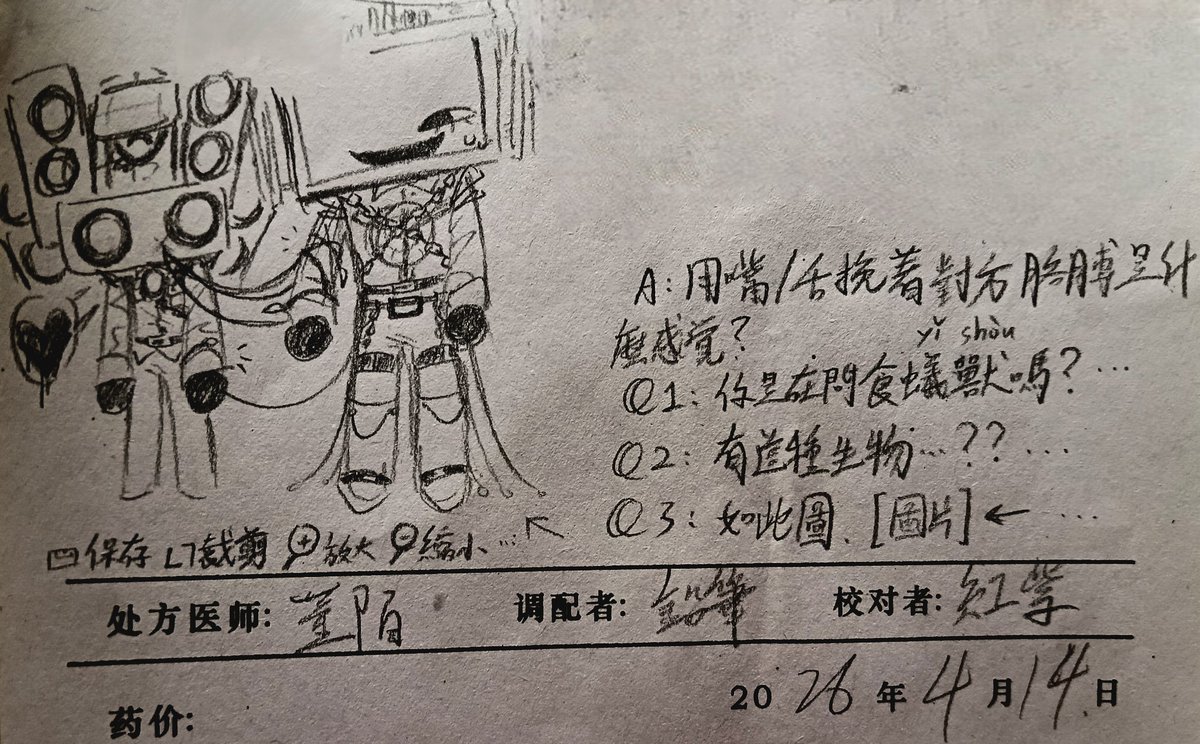 A: 用嘴/舌挽着對方胳膊是什
麼感觉?
yǐ shòu
Q1: 你是在問食蟻獸嗎?...
Q2: 有這種生物...??...
Q3: 如此圖. [圖片]← ...
保存 裁剪 放大 縮小...
处方医师: 陌 调配者: 鉛筆 校对者: 紅掌
2026年4月14日
药价: